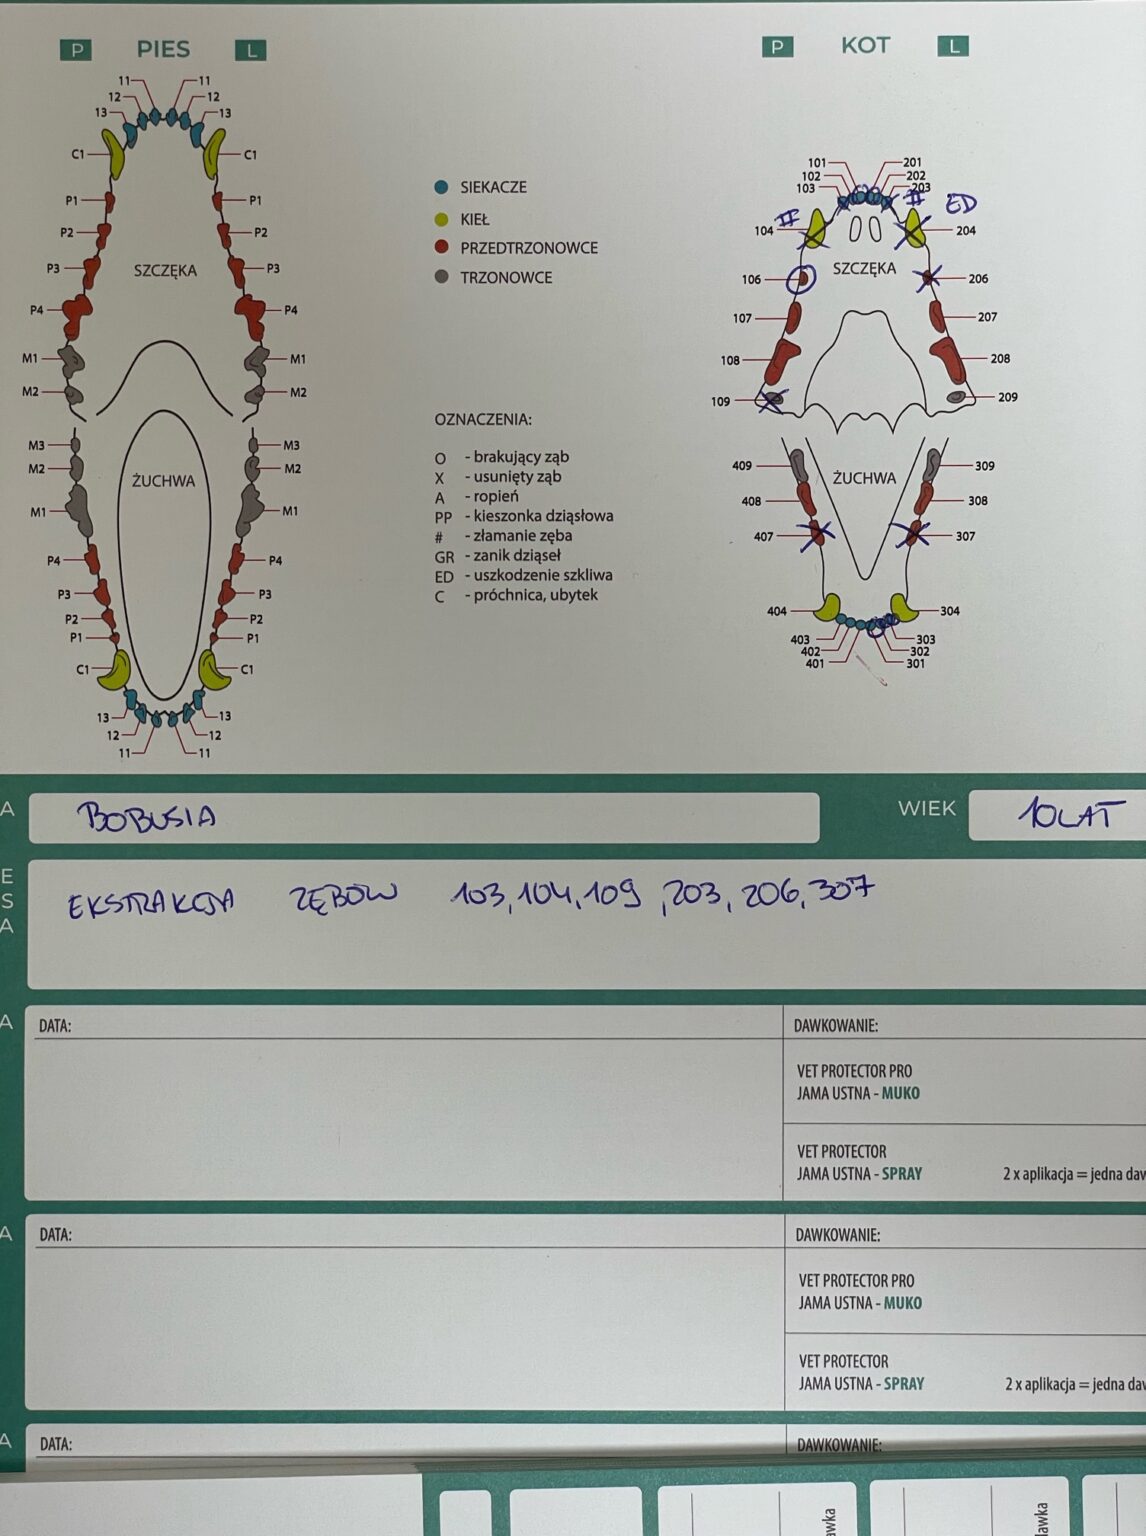 P PIES L
11 11
12 12
13 13
C1 C1
P1 P1
P2 P2
P3 SZCZĘKA P3
P4 P4
M1 M1
M2 M2
M3 M3
M2 M2
ŻUCHWA
M1 M1
P4 P4
P3 P3
P2 P2
P1 P1
C1 C1
13 13
12 12
11 11
SIEKACZE
KIEŁ
PRZEDTRZONOWCE
TRZONOWCE
OZNACZENIA:
O - brakujący ząb
X - usunięty ząb
A - ropień
PP - kieszonka dziąsłowa
# - złamanie zęba
GR - zanik dziąseł
ED - uszkodzenie szkliwa
C - próchnica, ubytek
P KOT L
101 201
102 202
103 203
# # ED
104 204
SZCZĘKA
106 206
107 207
108 208
109 209
409 ŻUCHWA 309
408 308
407 307
404 304
403 303
402 302
401 301
A BOBUSIA WIEK 10 LAT
E
S
A
EKSTRAKCJA ZĘBÓW 103, 104, 109, 203, 206, 307
A DATA: DAWKOWANIE:
VET PROTECTOR PRO
JAMA USTNA - MUKO
VET PROTECTOR
JAMA USTNA - SPRAY 2 x aplikacja = jedna daw
A DATA: DAWKOWANIE:
VET PROTECTOR PRO
JAMA USTNA - MUKO
VET PROTECTOR
JAMA USTNA - SPRAY 2 x aplikacja = jedna daw
A DATA: DAWKOWANIE:
awka
lawka